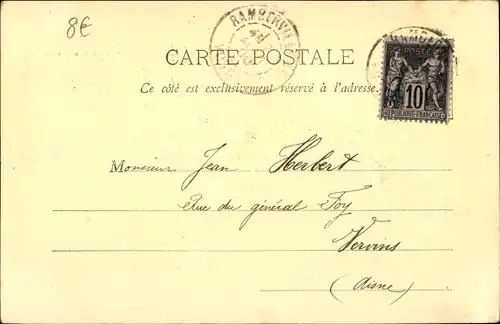 8€
RAMBERVILLERS
CARTE POSTALE
Ce côté est exclusivement réservé à l'adresse.
POSTES
10
REPUBLIQUE FRANÇAISE
Monsieur Jean Herbert
Rue du général Foy
Vervins
(Aisne)